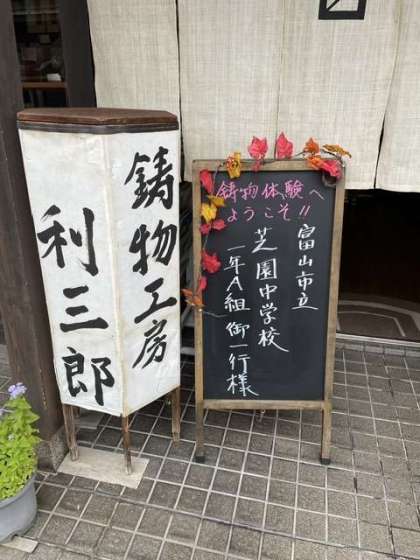 鋳物工房
利三郎
鋳物体験へ
ようこそ!!
富山市立
芝園中学校
一年A組 御一行様